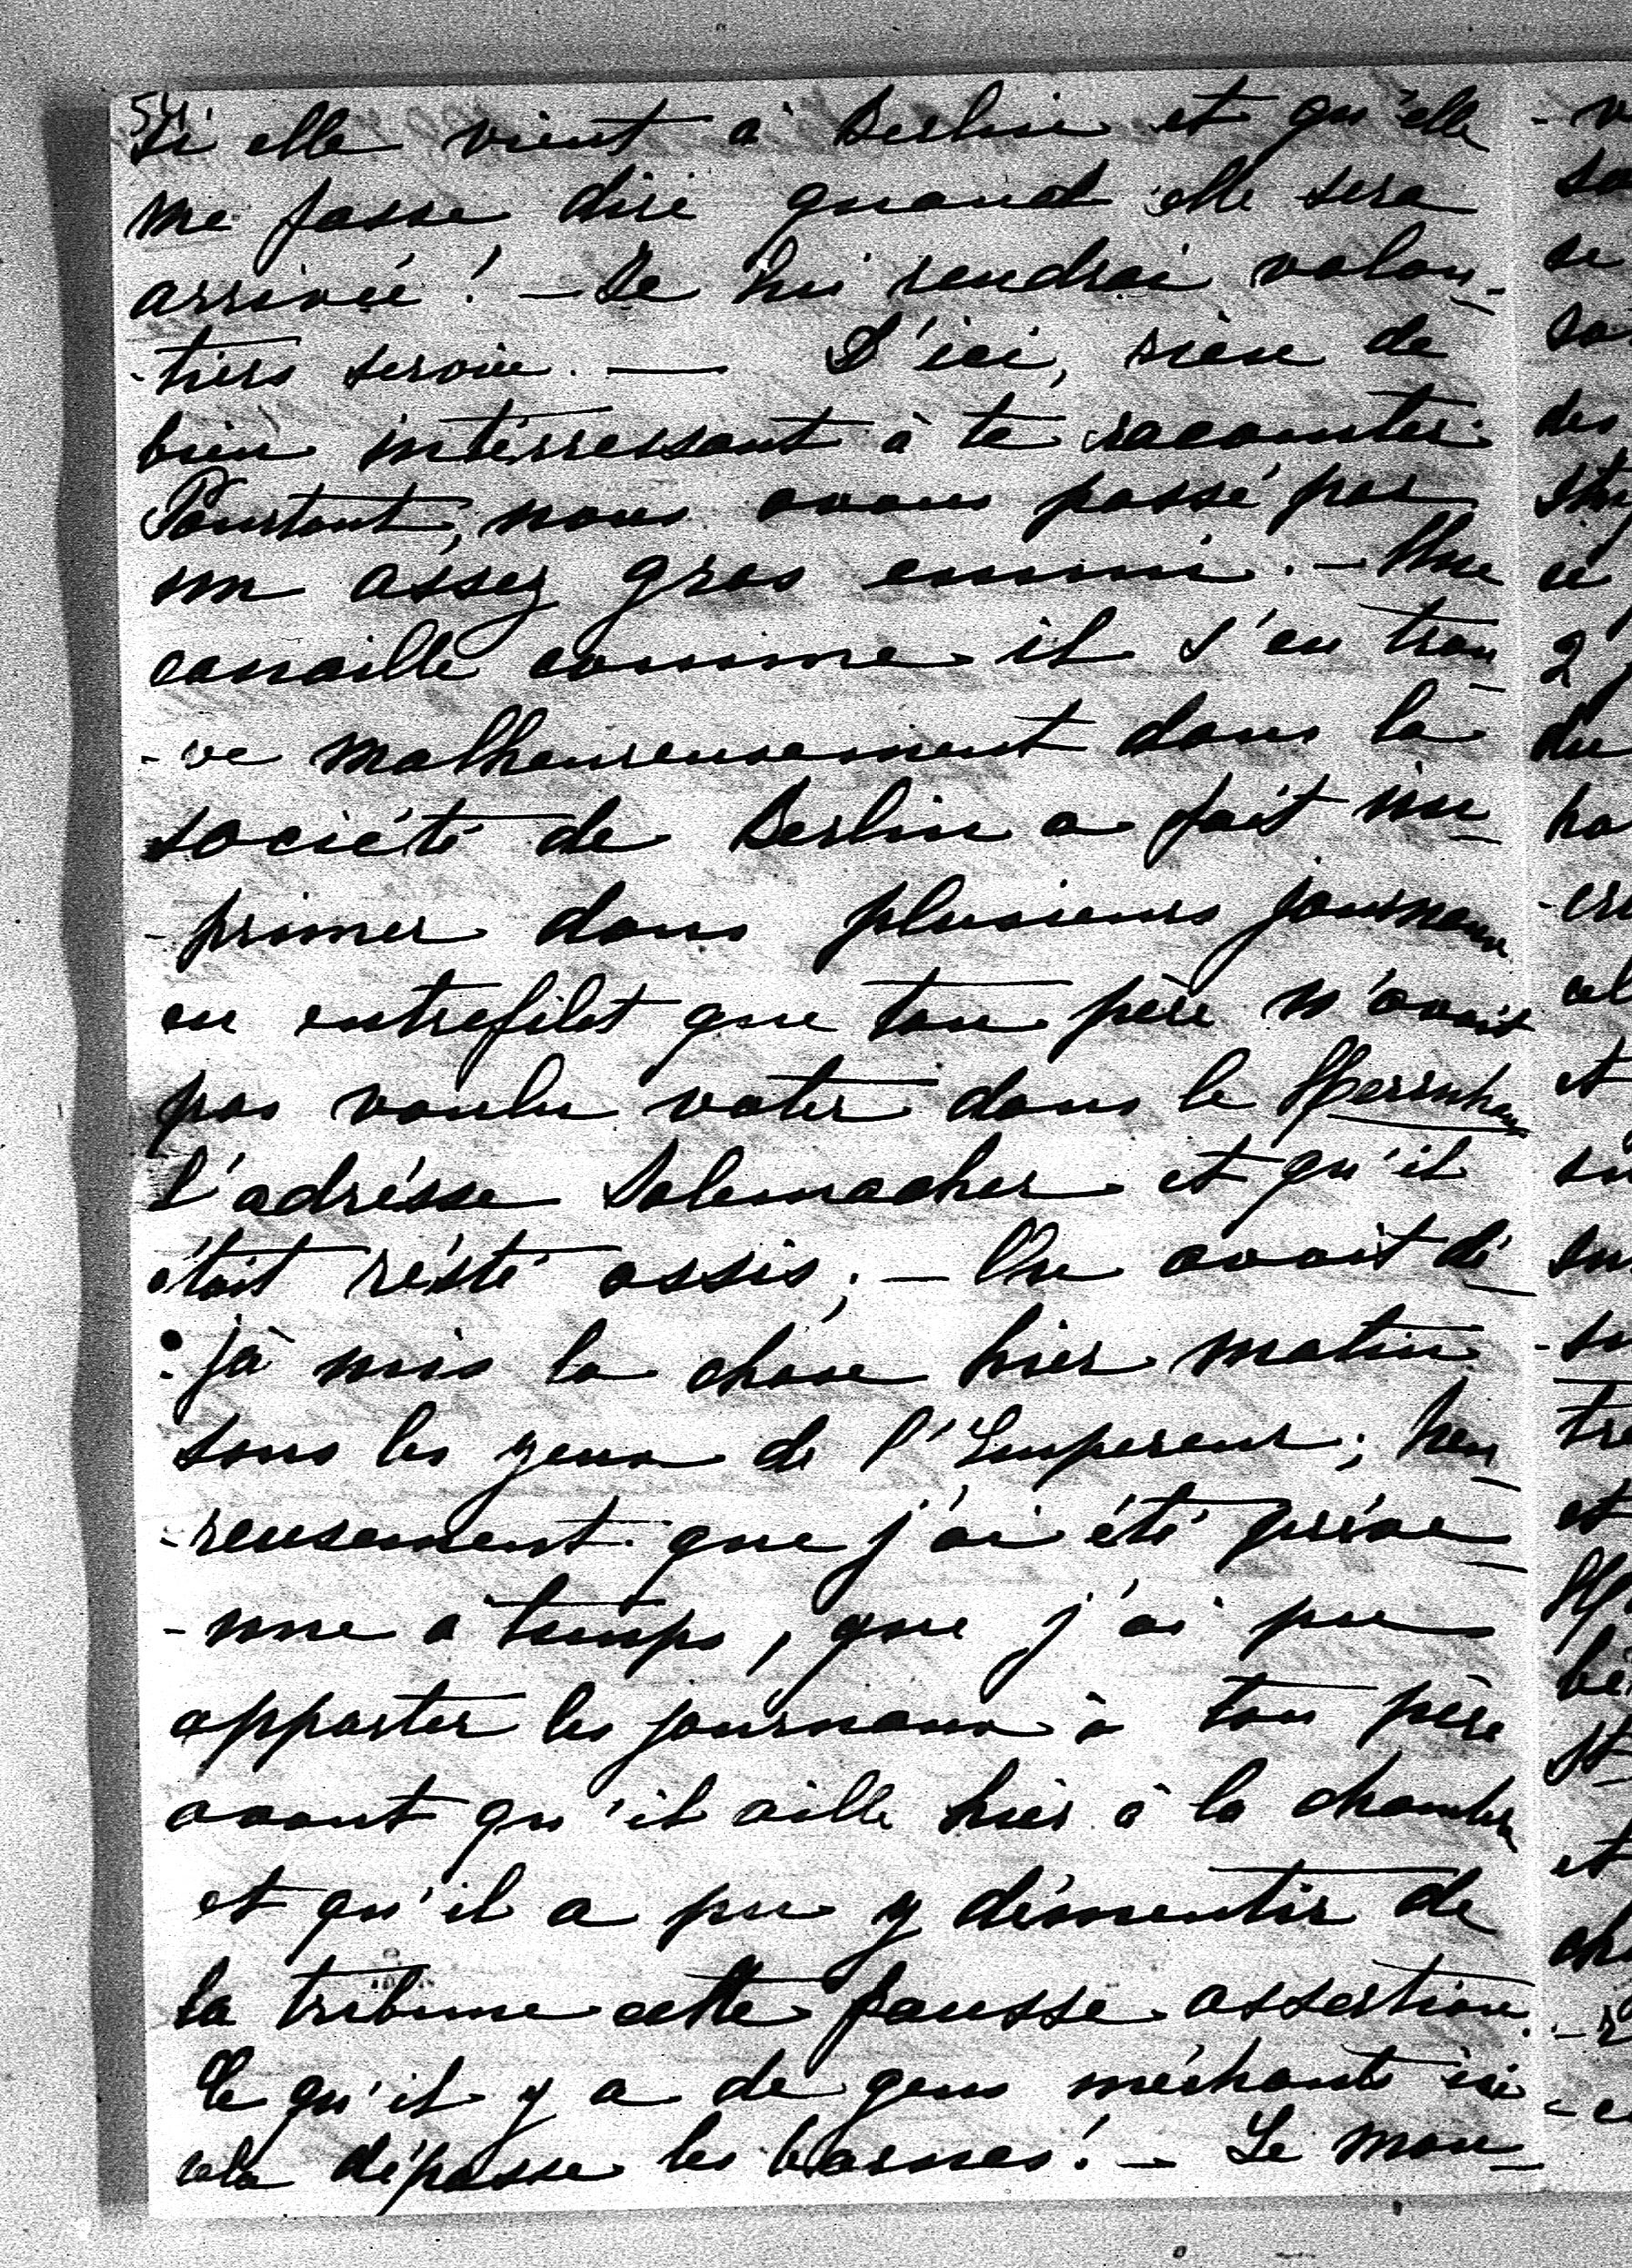 54
Si elle vient à Berlin et qu'elle
me fasse dire quand elle sera
arrivée! - Je lui rendrai volon-
-tiers service. — D'ici, rien de
bien intérressant à te raconter.
Pourtant, nous avons passé par
un assez gros ennui. - Une
canaille comme il s'en trou-
-ve malheureusement dans la
société de Berlin a fait im-
-primer dans plusieurs journaux
en entrefilet que ton père n'avait
pas voulu voter dans le Herrnhaus
l'adrésse Solemacher et qu'il
était résté assis; - On avait dé-
-jà mis la chose hier matin
sous les yeux de l'Empereur; heu-
-reusement que j'ai été préve-
-nue à temps, que j'ai pu
apporter les journaux à ton père
avant qu'il aille hier à la chambre
et qu'il a pu y démentir de
la tribune cette fausse assertion.
Ce qu'il y a de gens méchants ici
cela dépasse les bornes! - Le mon-